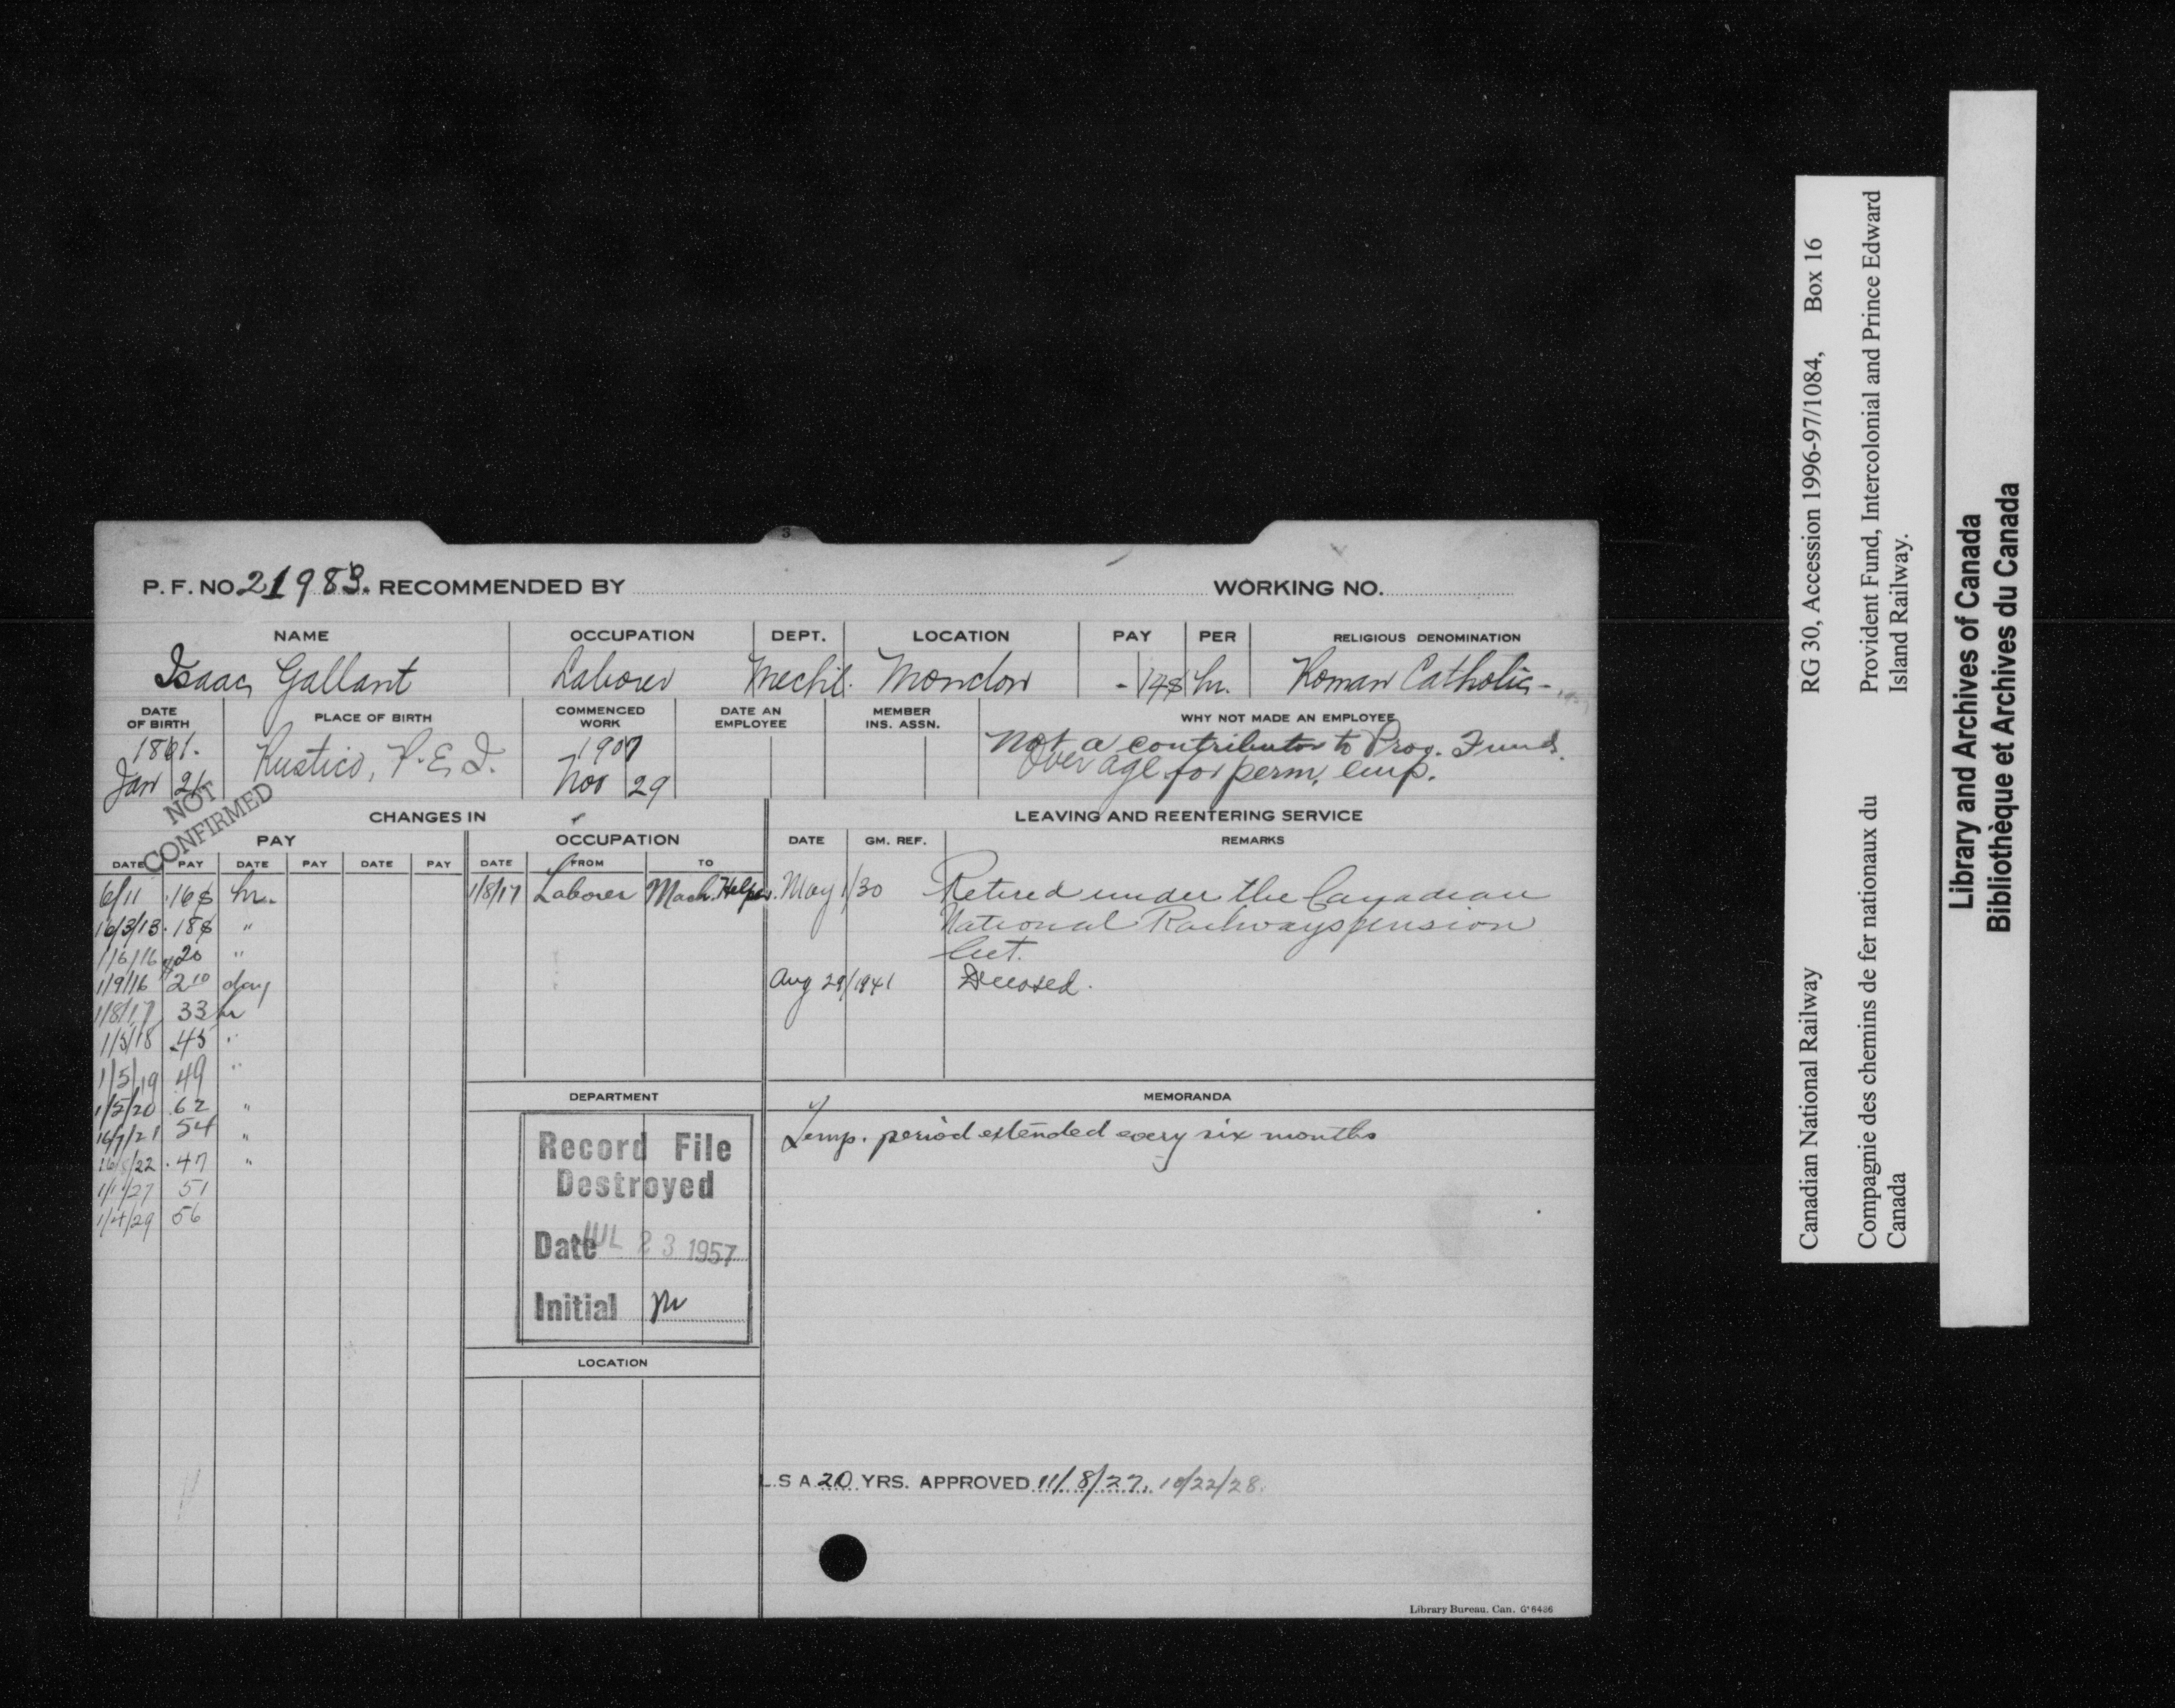 3
P. F. NO. 21983. RECOMMENDED BY WORKING NO.
NAME OCCUPATION DEPT. LOCATION PAY PER RELIGIOUS DENOMINATION
Isaac Gallant Laborer Mech'l. Moncton - 14¢ hr. Roman Catholic -
DATE OF BIRTH PLACE OF BIRTH COMMENCED WORK DATE AN EMPLOYEE MEMBER INS. ASSN. WHY NOT MADE AN EMPLOYEE
1861. Rustico, P.E.I. 1907 Not a contributor to Prov. Fund.
Jan 21 Nov 29 Over age for perm. emp.
NOT CONFIRMED
CHANGES IN LEAVING AND REENTERING SERVICE
PAY OCCUPATION DATE GM. REF. REMARKS
DATE PAY DATE PAY DATE PAY DATE FROM TO
6/11 .16¢ hr. 1/8/17 Laborer Mach. Helper. May 1/30 Retired under the Canadian
16/3/13 .18¢ " National Railways pension
1/6/16 20 " Act.
1/9/16 2 10 day Aug 29/1941 Deceased.
1/8/17 33 hr
1/5/18 .45 "
1/5/19 49 "
1/5/20 .62 "
16/7/21 54 "
16/8/22 .47 "
1/1/27 51
1/4/29 56
DEPARTMENT MEMORANDA
Temp. period extended every six months
Record File
Destroyed
Date JUL 23 1957
Initial M
LOCATION
L.S A. 20 YRS. APPROVED 11/8/27. 10/22/28.
Library Bureau. Can. G*6486
Canadian National Railway RG 30, Accession 1996-97/1084, Box 16
Compagnie des chemins de fer nationaux du Canada
Provident Fund, Intercolonial and Prince Edward Island Railway.
Library and Archives of Canada
Bibliothèque et Archives du Canada